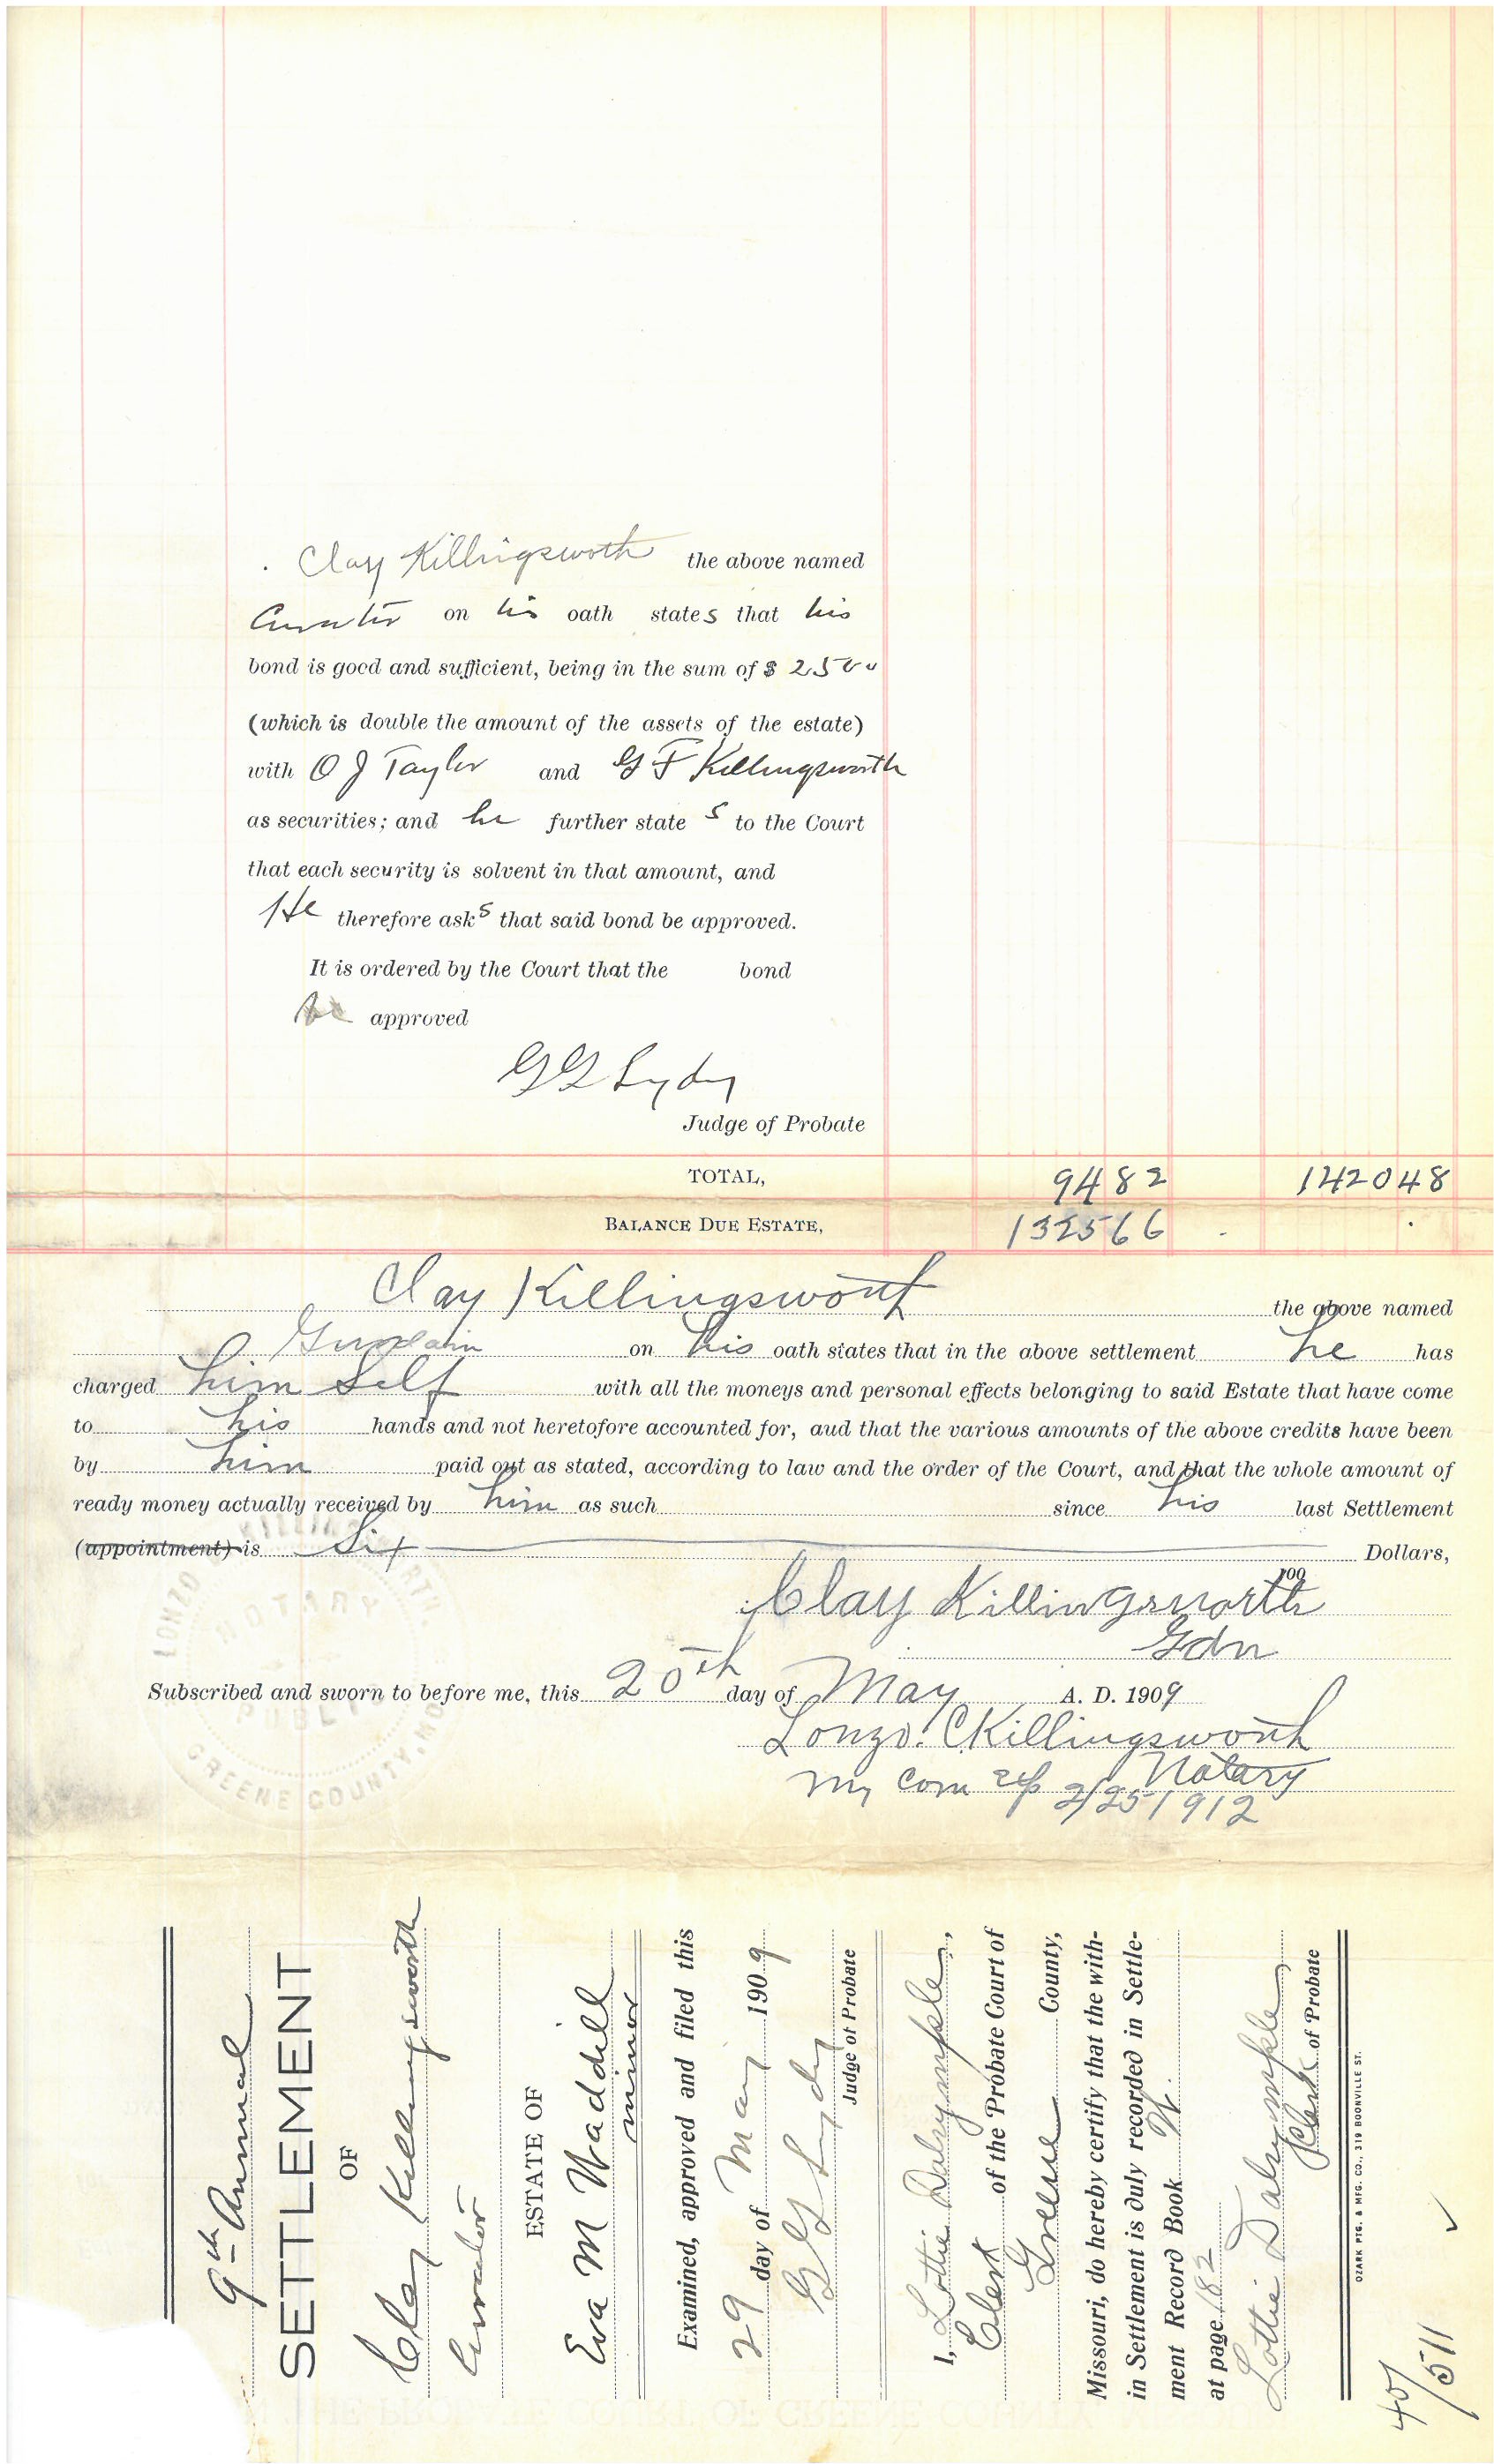 Clay Killingsworth the above named
Curator on his oath states that his
bond is good and sufficient, being in the sum of $ 2500
(which is double the amount of the assets of the estate)
with O J Taylor and G F Killingsworth
as securities; and he further state s to the Court
that each security is solvent in that amount, and
He therefore ask s that said bond be approved.
It is ordered by the Court that the bond
be approved
G G Lydy
Judge of Probate
TOTAL, 94 82 1420 48
BALANCE DUE ESTATE, 1325 66
Clay Killingsworth the above named
on his oath states that in the above settlement he has
charged him self with all the moneys and personal effects belonging to said Estate that have come
to his hands and not heretofore accounted for, aud that the various amounts of the above credits have been
by him paid out as stated, according to law and the order of the Court, and that the whole amount of
ready money actually received by him as such since his last Settlement
(appointment) is Six Dollars,
100
Clay Killingsworth
Gdn
Subscribed and sworn to before me, this 20th day of May A. D. 1909
Lonzo. C Killingsworth
Notary
My Com exp 2/25/1912
LONZO KILLINGSWORTH
NOTARY PUBLIC
GREENE COUNTY, MO
9th Annual
SETTLEMENT
OF
Clay Killingsworth
Curator
ESTATE OF
Eva M Waddill
minor
Examined, approved and filed this
29 day of May 1909
G G Lydy
Judge of Probate
I, Lottie Dalrymple,
Clerk of the Probate Court of
Greene County,
Missouri, do hereby certify that the with-
in Settlement is duly recorded in Settle-
ment Record Book W.
at page 182
Lottie Dalrymple
Clerk of Probate
OZARK PTG. & MFG. CO., 319 BOONVILLE ST.
511